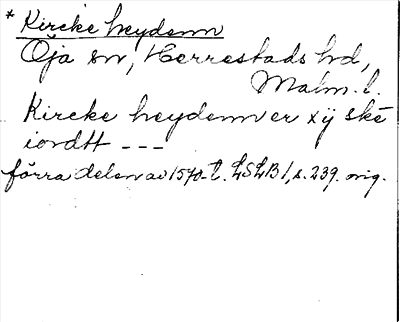 * Kircke heydenn
Öja sn, Herrestads hd,
Malm. l.
Kircke heydenn er xij ske
iordtt ---
förra delen av 1570-t. LSLB 1, s. 239. orig.